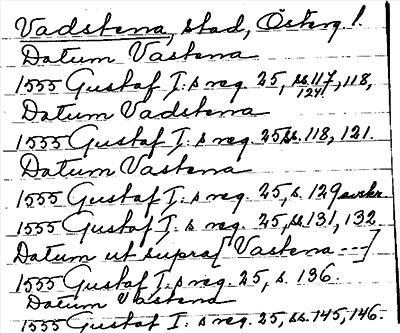 Vadstena, stad, Österg. l.
Datum Vastena
1555 Gustaf I:s reg. 25, ss. 117, 118,
121.
Datum Vadstena
1555 Gustaf I:s reg. 25 ss. 118, 121.
Datum Vastena
1555 Gustaf I:s reg. 25, s. 129
1555 Gustaf I:s reg. 25, ss. 131, 132
Datum ut supra [Vastena ---]
1555 Gustaf I:s reg. 25, s. 136.
Datum Vastena
1555 Gustaf I:s reg. 25, ss. 145, 146.